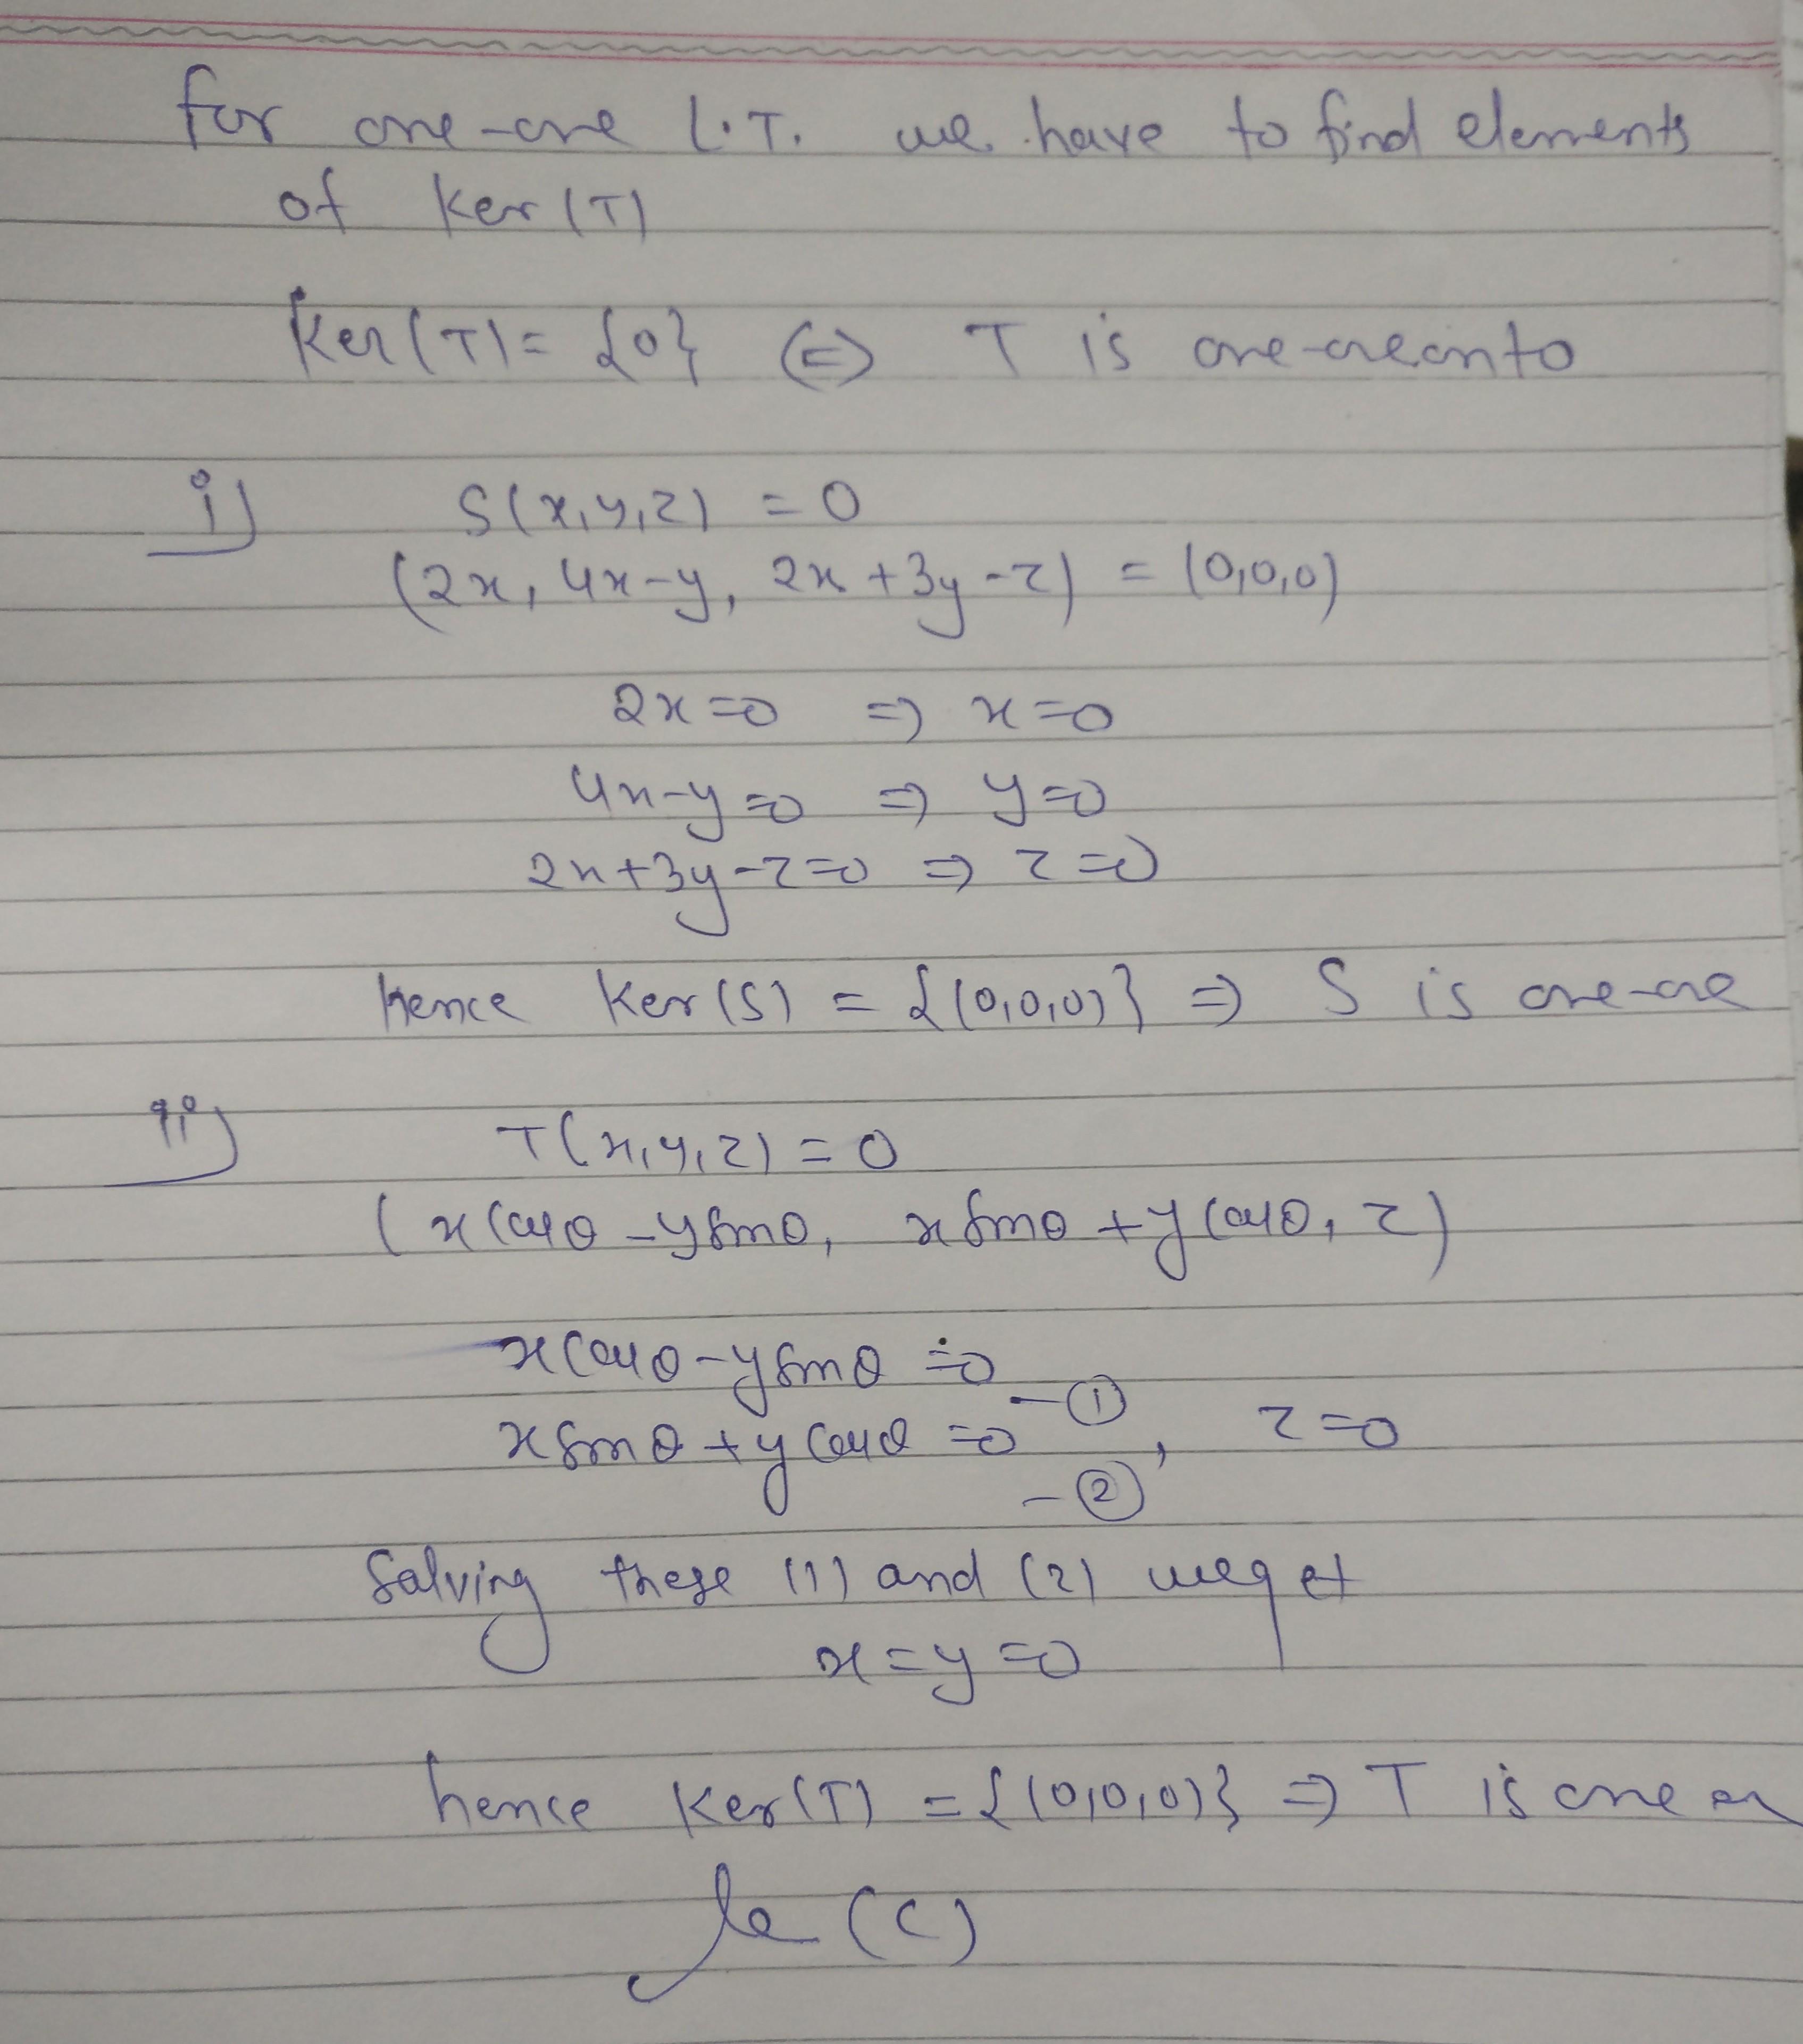 for one-one L.T. we have to find elements
of Ker(T)
Ker(T) = {0} (=) T is one-one
i) S(x,y,z) = 0
(2x, 4x-y, 2x+3y-z) = (0,0,0)
2x=0 => x=0
4x-y=0 => y=0
2x+3y-z=0 => z=0
hence Ker(S) = {(0,0,0)} => S is one-one
ii) T(x,y,z) = 0
(x cosθ - y sinθ, x sinθ + y cosθ, z)
x cosθ - y sinθ = 0 - ①
x sinθ + y cosθ = 0 - ②, z=0
Solving these (1) and (2) we get
x=y=0
hence Ker(T) = {(0,0,0)} => T is one
(C)